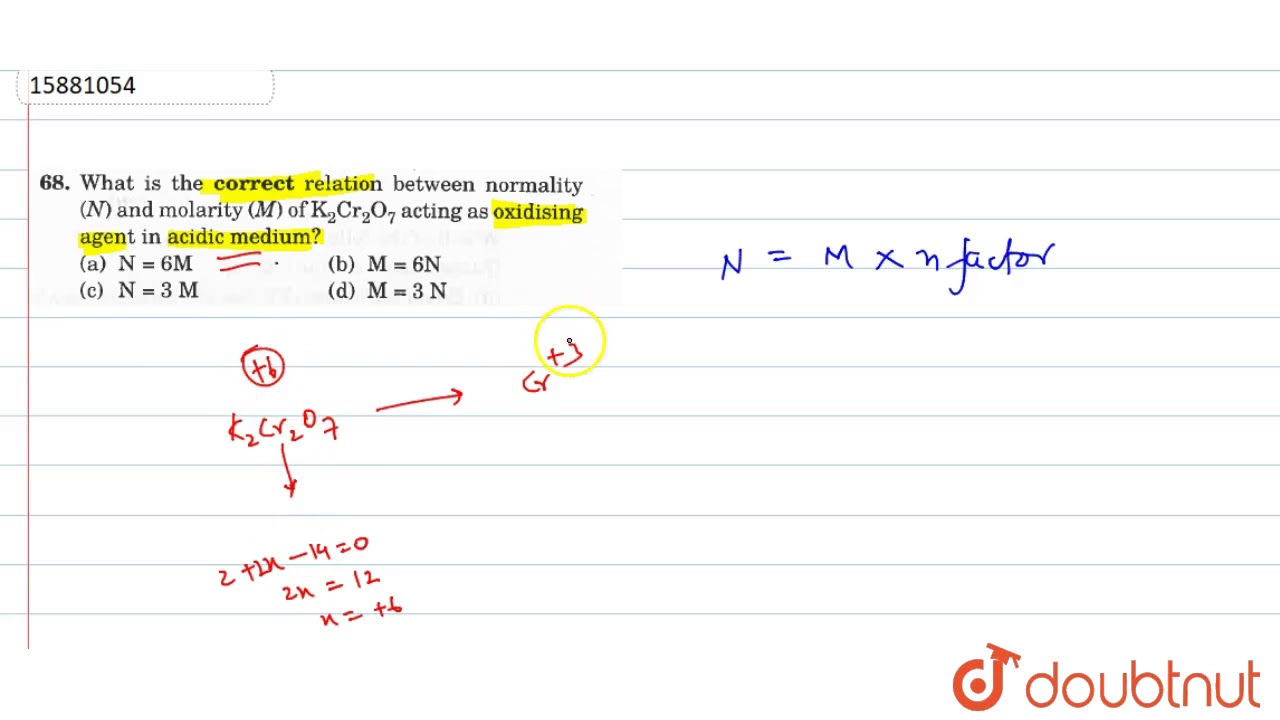 15881054
68. What is the correct relation between normality
(N) and molarity (M) of K₂Cr₂O₇ acting as oxidising
agent in acidic medium?
(a) N = 6M (b) M = 6N
(c) N = 3 M (d) M = 3 N
N = M × n factor
+6
+3
Cr
K₂Cr₂O₇
2 + 2x − 14 = 0
2x = 12
x = +6
doubtnut